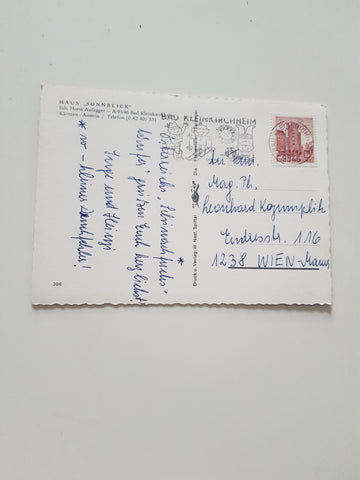 HAUS „SONNBLICK"
Inh. Horst Aufegger - A-9546 Bad Kleinkirchheim
Kärnten - Austria / Telefon (0 42 40) 331
BAD KLEINKIRCHHEIM
Österreichs
grüßen Euch herzlichst
Inge und Heinzi
* wo - kleiner Denkfehler!
An Fam.
Mag. Ph.
Leonhard Kozumplik
Endresstr. 116
1238 WIEN-Mauer
Druck u. Verlag W. Nast, Spittal
398